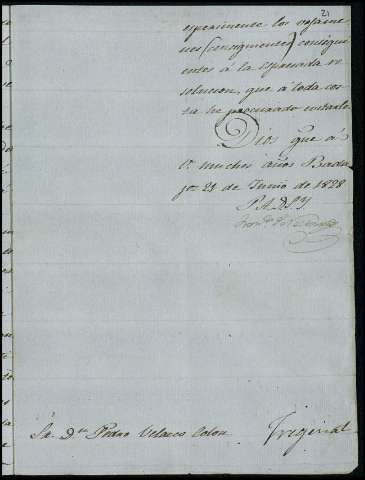 21
esperimente los
nes (consiguientes) consigui-
entes á la espresada re-
solucion, que á toda cos-
ta he procurado evitarle
Dios gue á
V. muchos años Bada-
joz 21 de Junio de 1828
P. A. D. S. Y.
Sr. Dn. Pedro Velasco Colon
Fregenal